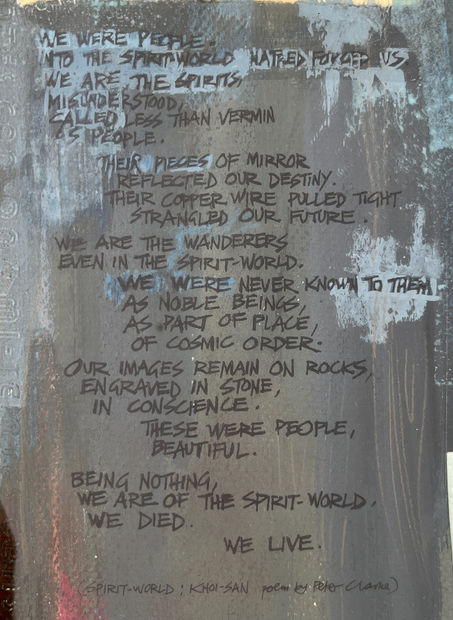 WE WERE PEOPLE.
INTO THE SPIRIT-WORLD HATRED FORCED US.
WE ARE THE SPIRITS,
MISUNDERSTOOD,
CALLED LESS THAN VERMIN
AS PEOPLE.
THEIR PIECES OF MIRROR
REFLECTED OUR DESTINY.
THEIR COPPER WIRE PULLED TIGHT
STRANGLED OUR FUTURE.
WE ARE THE WANDERERS
EVEN IN THE SPIRIT-WORLD.
WE WERE NEVER KNOWN TO THEM
AS NOBLE BEINGS,
AS PART OF PLACE,
OF COSMIC ORDER.
OUR IMAGES REMAIN ON ROCKS,
ENGRAVED IN STONE,
IN CONSCIENCE.
THESE WERE PEOPLE,
BEAUTIFUL.
BEING NOTHING,
WE ARE OF THE SPIRIT-WORLD.
WE DIED.
WE LIVE.
(SPIRIT-WORLD; KHOI-SAN poem by Peter Clarke)